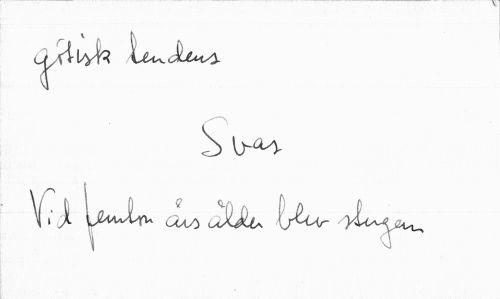 götisk tendens
Svar
Vid femton års ålder blev stugan